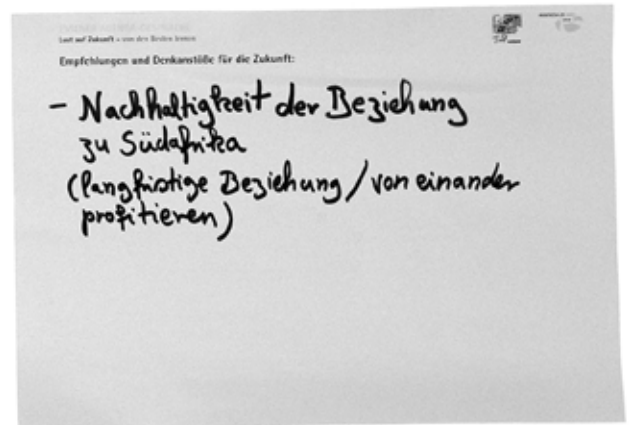 Lust auf Zukunft – von den Besten lernen
Empfehlungen und Denkanstöße für die Zukunft:
– Nachhaltigkeit der Beziehung
zu Südafrika
(langfristige Beziehung / von einander
profitieren)